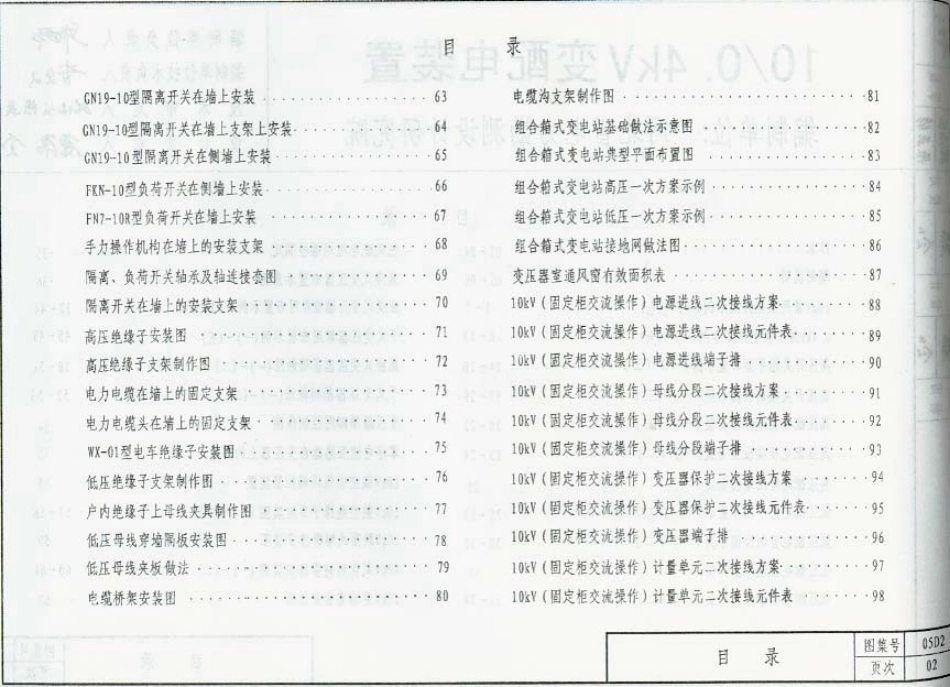 目 录
GN19-10型隔离开关在墙上安装 63
GN19-10型隔离开关在墙上支架上安装 64
GN19-10型隔离开关在侧墙上安装 65
FKN-10型负荷开关在侧墙上安装 66
FN7-10R型负荷开关在墙上安装 67
手力操作机构在墙上的安装支架 68
隔离、负荷开关轴承及轴连接态图 69
隔离开关在墙上的安装支架 70
高压绝缘子安装图 71
高压绝缘子支架制作图 72
电力电缆在墙上的固定支架 73
电力电缆头在墙上的固定支架 74
WX-01型电车绝缘子安装图 75
低压绝缘子支架制作图 76
户内绝缘子上母线夹具制作图 77
低压母线穿墙隔板安装图 78
低压母线夹板做法 79
电缆桥架安装图 80
电缆沟支架制作图 81
组合箱式变电站基础做法示意图 82
组合箱式变电站典型平面布置图 83
组合箱式变电站高压一次方案示例 84
组合箱式变电站低压一次方案示例 85
组合箱式变电站接地网做法图 86
变压器室通风窗有效面积表 87
10kV(固定柜交流操作)电源进线二次接线方案 88
10kV(固定柜交流操作)电源进线二次接线元件表 89
10kV(固定柜交流操作)电源进线端子排 90
10kV(固定柜交流操作)母线分段二次接线方案 91
10kV(固定柜交流操作)母线分段二次接线元件表 92
10kV(固定柜交流操作)母线分段端子排 93
10kV(固定柜交流操作)变压器保护二次接线方案 94
10kV(固定柜交流操作)变压器保护二次接线元件表 95
10kV(固定柜交流操作)变压器端子排 96
10kV(固定柜交流操作)计量单元二次接线方案 97
10kV(固定柜交流操作)计量单元二次接线元件表 98
目 录
图集号 05D2
页次 02